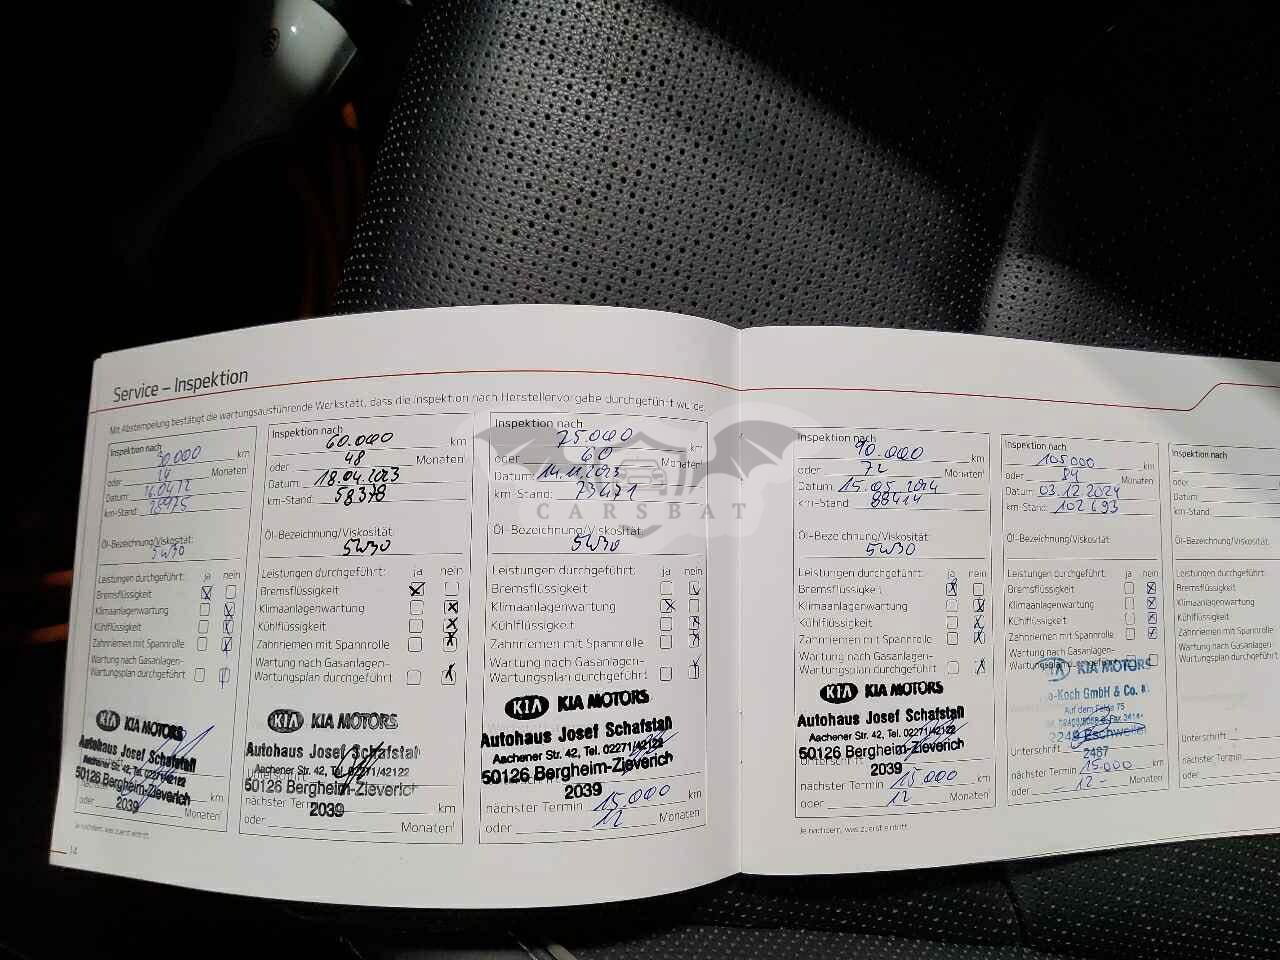 Service – Inspektion
Mit Abstempelung bestätigt die wartungsausführende Werkstatt, dass die Inspektion nach Herstellervorgabe durchgeführt wurde.
Inspektion nach
30.000 km
oder 24 Monaten
Datum:
km-Stand:
Öl-Bezeichnung/Viskosität:
5W30
Leistungen durchgeführt: ja nein
Bremsflüssigkeit
Klimaanlagenwartung
Kühlflüssigkeit
Zahnriemen mit Spannrolle
Wartung nach Gasanlagen-
Wartungsplan durchgeführt
KIA KIA MOTORS
Autohaus Josef Schafstall
Aachener Str. 42, Tel. 02271/42122
50126 Bergheim-Zieverich
2039
km
oder Monaten¹
Inspektion nach
60.000 km
oder 48 Monaten¹
Datum: 18.04.2023
km-Stand: 58378
Öl-Bezeichnung/Viskosität:
5W30
Leistungen durchgeführt: ja nein
Bremsflüssigkeit
Klimaanlagenwartung
Kühlflüssigkeit
Zahnriemen mit Spannrolle
Wartung nach Gasanlagen-
Wartungsplan durchgeführt
KIA KIA MOTORS
Autohaus Josef Schafstall
Aachener Str. 42, Tel. 02271/42122
50126 Bergheim-Zieverich
nächster Termin 2039 km
oder Monaten¹
Inspektion nach
75.000 km
oder 60 Monaten¹
Datum: 14.11.2023
km-Stand: 73471
Öl-Bezeichnung/Viskosität:
5W30
Leistungen durchgeführt: ja nein
Bremsflüssigkeit
Klimaanlagenwartung
Kühlflüssigkeit
Zahnriemen mit Spannrolle
Wartung nach Gasanlagen-
Wartungsplan durchgeführt
KIA KIA MOTORS
Autohaus Josef Schafstall
Aachener Str. 42, Tel. 02271/42122
50126 Bergheim-Zieverich
2039
nächster Termin 15.000 km
oder 12 Monaten¹
¹Je nachdem, was zuerst eintritt.
14
Inspektion nach
90.000 km
oder 72 Monaten¹
Datum: 15.05.2024
km-Stand: 88414
Öl-Bezeichnung/Viskosität:
5W30
Leistungen durchgeführt: ja nein
Bremsflüssigkeit
Klimaanlagenwartung
Kühlflüssigkeit
Zahnriemen mit Spannrolle
Wartung nach Gasanlagen-
Wartungsplan durchgeführt
KIA KIA MOTORS
Autohaus Josef Schafstall
Aachener Str. 42, Tel. 02271/42122
50126 Bergheim-Zieverich
Unterschrift 2039
nächster Termin 15 000 km
oder 12 Monaten¹
Inspektion nach
105.000 km
oder 84 Monaten
Datum: 03.12.2024
km-Stand: 102693
Öl-Bezeichnung/Viskosität:
Leistungen durchgeführt: ja nein
Bremsflüssigkeit
Klimaanlagenwartung
Kühlflüssigkeit
Zahnriemen mit Spannrolle
Wartung nach Gasanlagen-
Wartungsplan durchgeführt
KIA MOTORS
o-Koch GmbH & Co.
Auf dem Felde 75
Eschweiler
Unterschrift 2487
nächster Termin 15.000 km
oder 12- Monaten
Inspektion nach
oder
Datum:
km-Stand:
Öl-Bezeichnung/Viskosität:
Leistungen durchgeführt:
Bremsflüssigkeit
Klimaanlagenwartung
Kühlflüssigkeit
Zahnriemen mit Spannrolle
Wartung nach Gasanlagen-
Wartungsplan durchgeführt
Unterschrift
nächster Termin
oder
¹Je nachdem, was zuerst eintritt.
CARSBAT